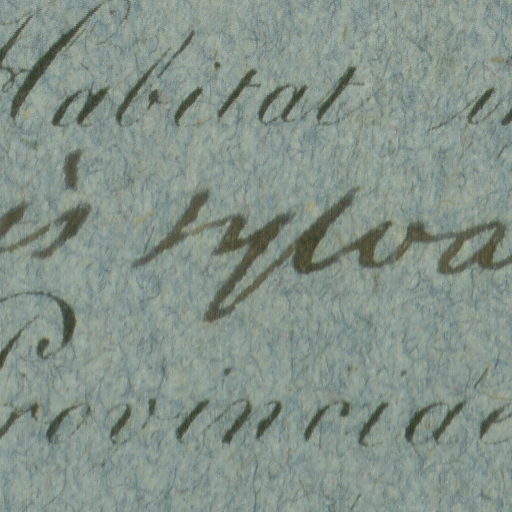 Habitat in
is sylva
Provinciae